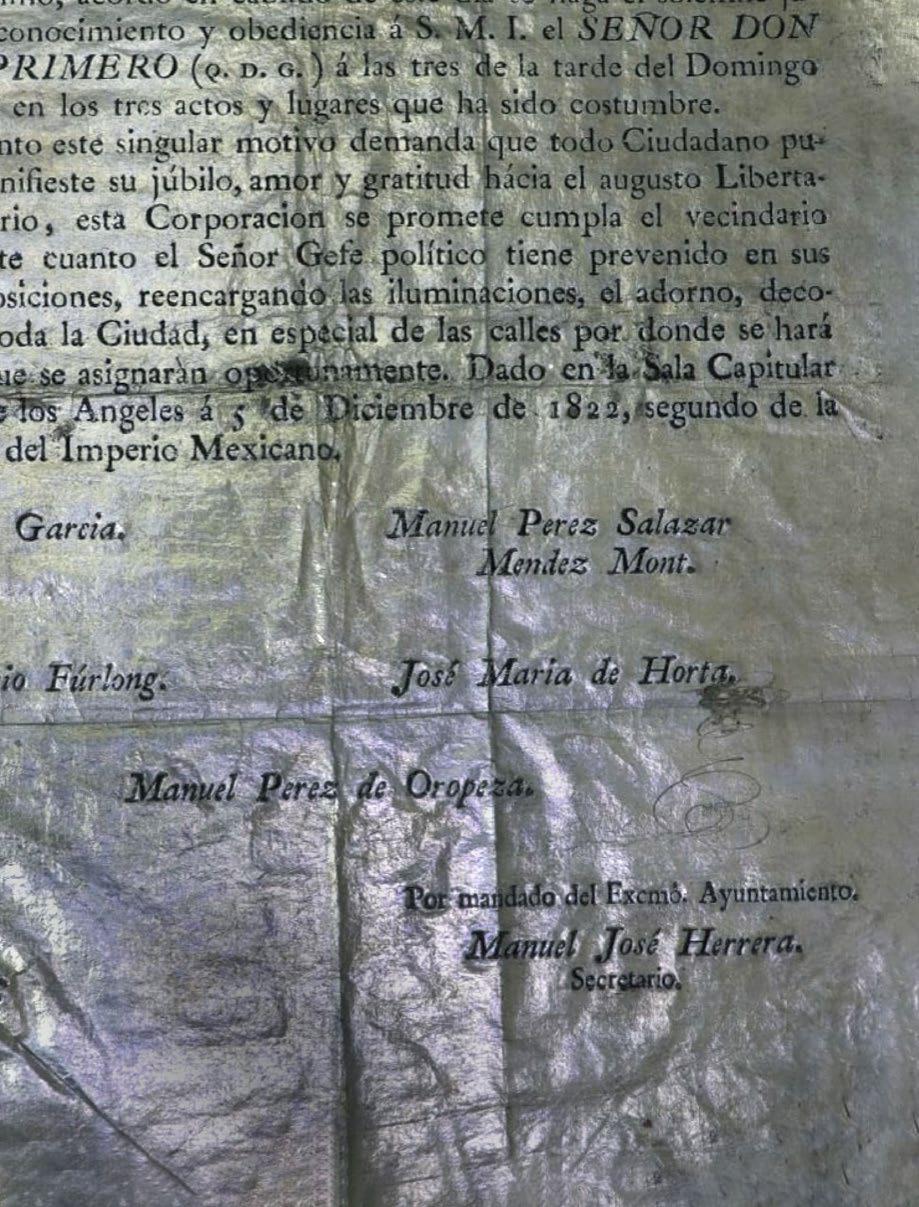 conocimiento y obediencia á S. M. I. el SEÑOR DON
PRIMERO (Q. D. G.) á las tres de la tarde del Domingo
en los tres actos y lugares que ha sido costumbre.
nto este singular motivo demanda que todo Ciudadano pu-
nifieste su júbilo, amor y gratitud hácia el augusto Liberta-
rio, esta Corporacion se promete cumpla el vecindario
te cuanto el Señor Gefe político tiene prevenido en sus
osiciones, reencargando las iluminaciones, el adorno, deco-
oda la Ciudad, en especial de las calles por donde se hará
ue se asignarán oportunamente. Dado en la Sala Capitular
e los Angeles á 5 de Diciembre de 1822, segundo de la
del Imperio Mexicano.
Garcia.
Manuel Perez Salazar
Mendez Mont.
io Fúrlong.
José Maria de Horta.
Manuel Perez de Oropeza.
Por mandado del Excmô. Ayuntamiento.
Manuel José Herrera.
Secretario.